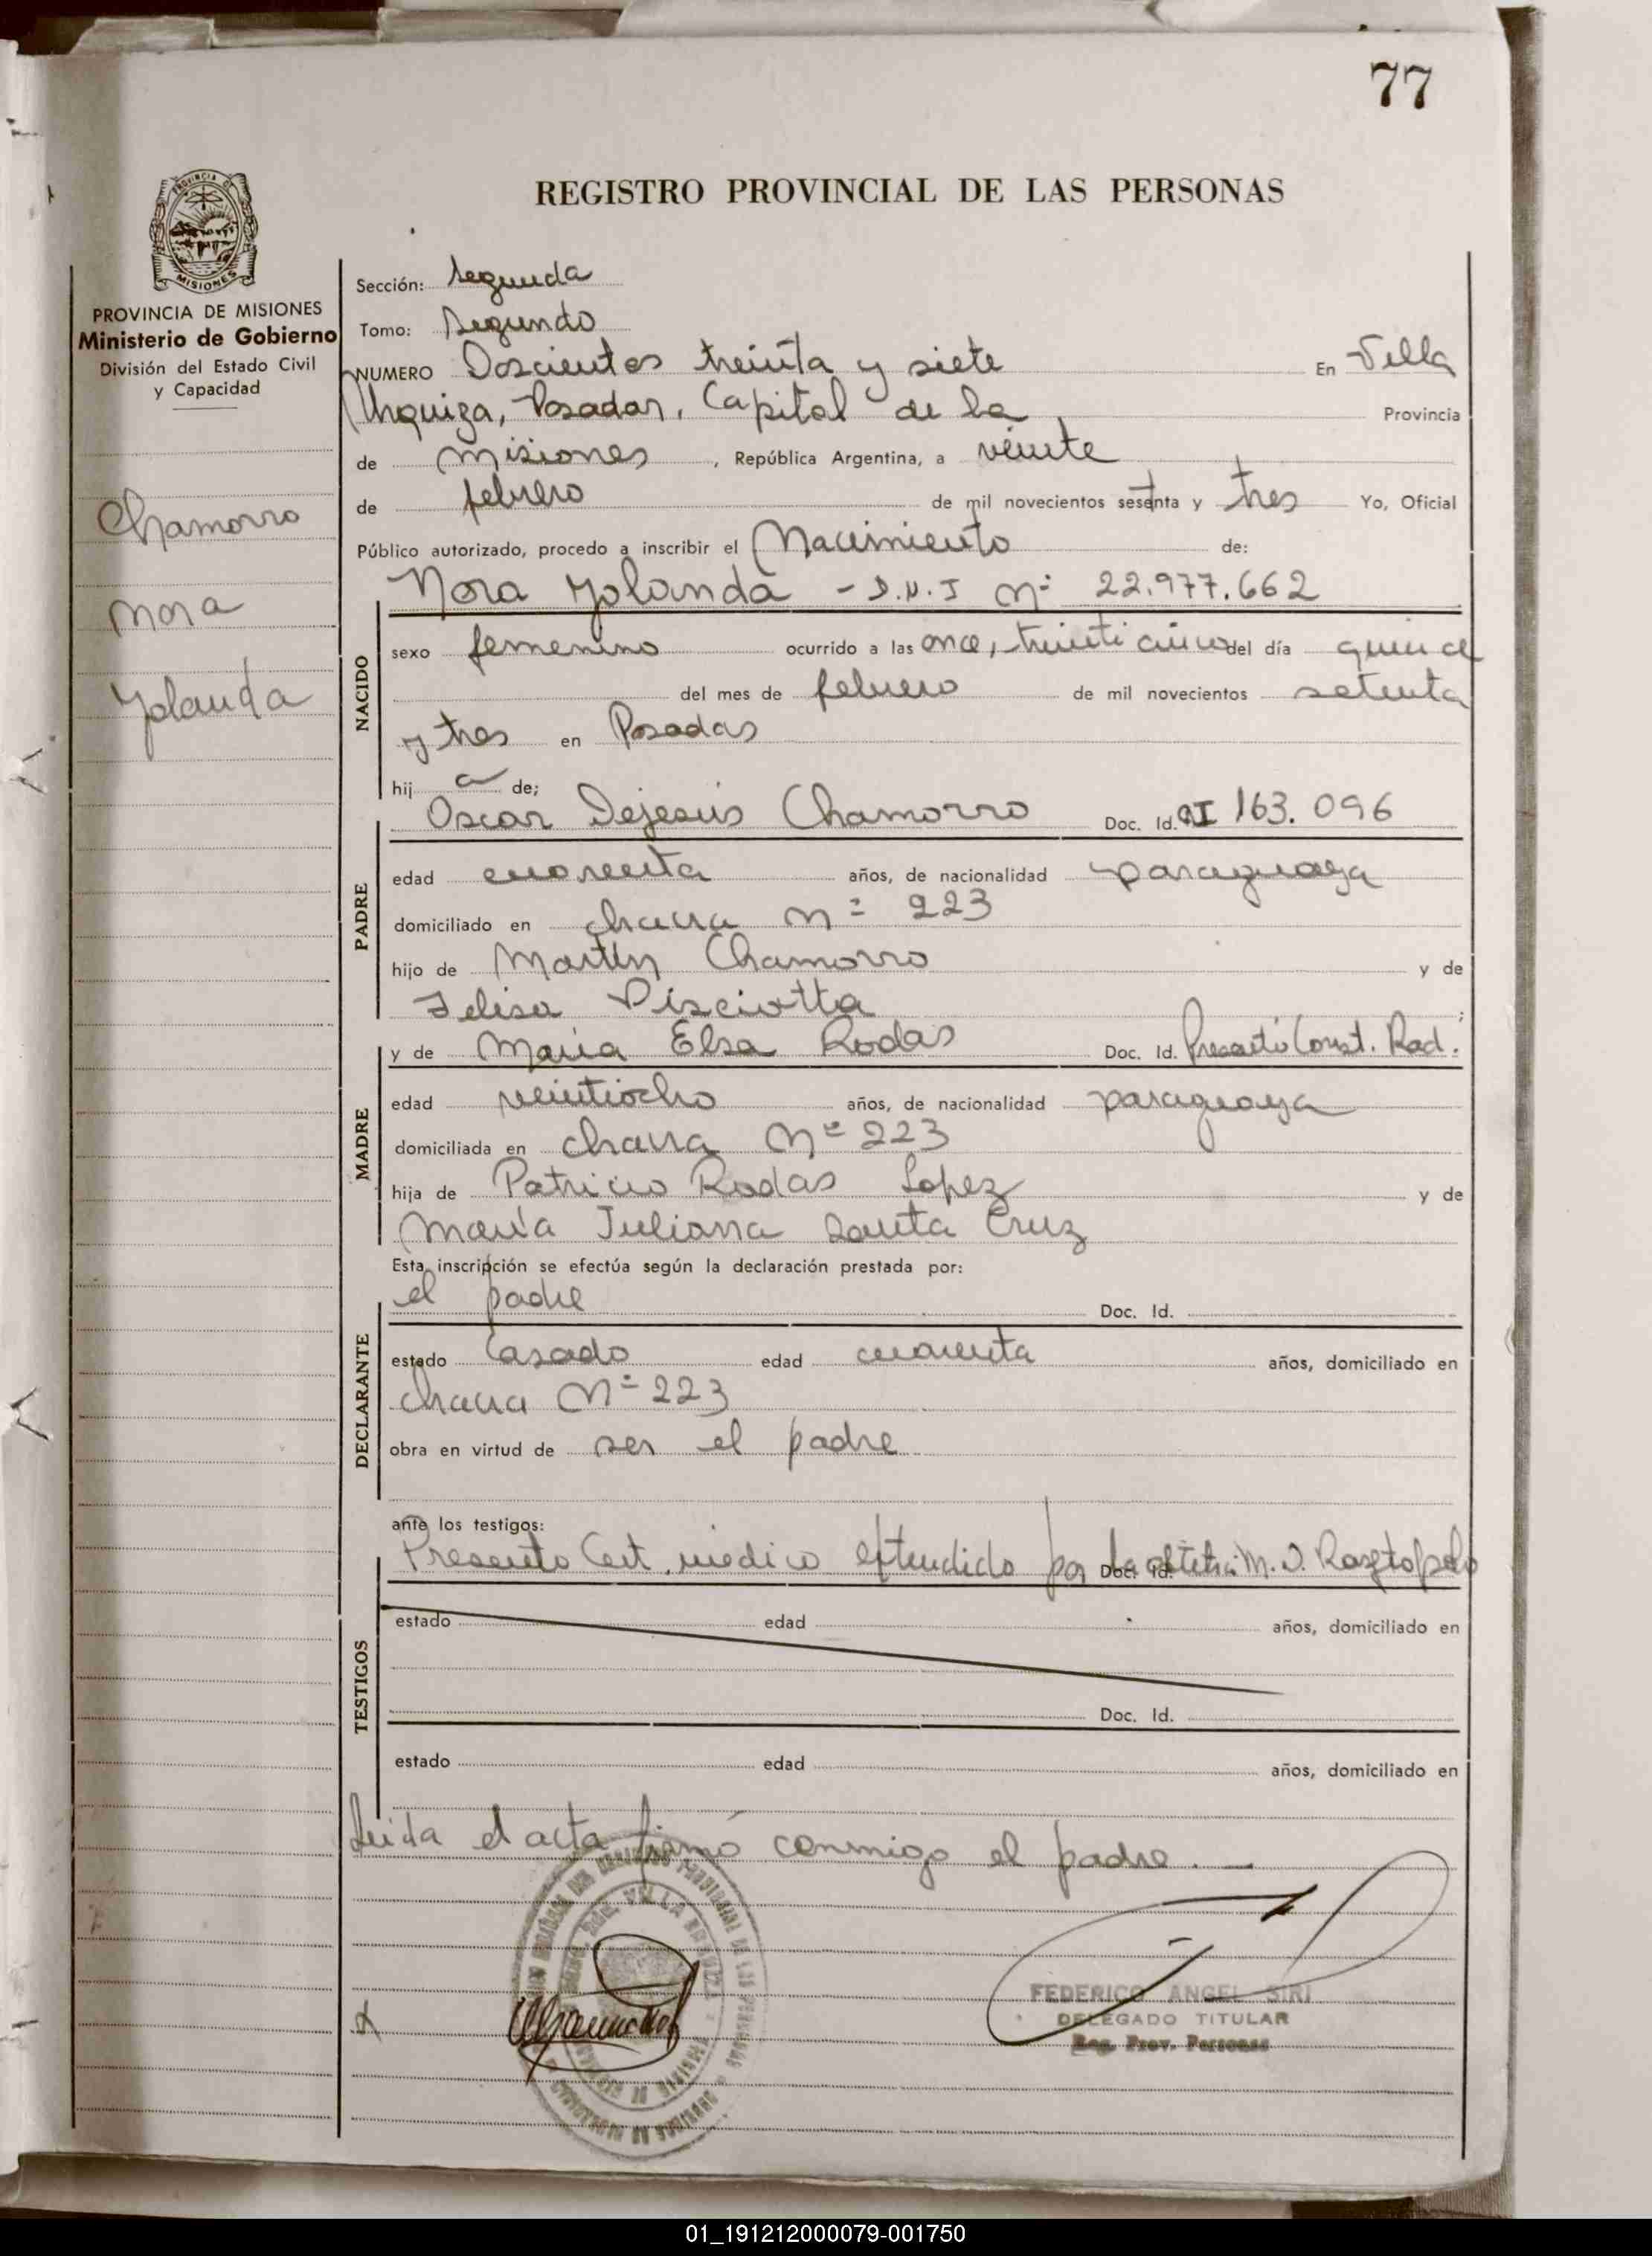 77
REGISTRO PROVINCIAL DE LAS PERSONAS
PROVINCIA DE
MISIONES
PROVINCIA DE MISIONES
Ministerio de Gobierno
División del Estado Civil
y Capacidad
Chamorro
Nora
Yolanda
Sección: Segunda
Tomo: Segundo
NUMERO Doscientos treinta y siete En Villa
Urquiza, Posadas, Capital de la Provincia
de Misiones, República Argentina, a veinte
de febrero de mil novecientos setenta y tres Yo, Oficial
Público autorizado, procedo a inscribir el Nacimiento de:
Nora Yolanda - D.N.I Nº 22.977.662
NACIDO
sexo femenino ocurrido a las once, treinti cinco del día quince
del mes de febrero de mil novecientos setenta
y tres en Posadas
hij a de;
Oscar Dejesús Chamorro Doc. Id. CI 163.096
PADRE
edad cuarenta años, de nacionalidad paraguaya
domiciliado en chacra Nº 223
hijo de Martín Chamorro y de
Felisa Pisciotta ;
y de María Elsa Rodas Doc. Id. Presentó Const. Rad.
MADRE
edad veintiocho años, de nacionalidad paraguaya
domiciliada en chacra Nº 223
hija de Patricio Rodas Lopez y de
María Juliana Santa Cruz
Esta inscripción se efectúa según la declaración prestada por:
el padre Doc. Id.
DECLARANTE
estado Casado edad cuarenta años, domiciliado en
chacra Nº 223
obra en virtud de ser el padre
ante los testigos:
Presento Cert. médico extendido por la Doc. Id. M.
TESTIGOS
estado edad años, domiciliado en
Doc. Id.
estado edad años, domiciliado en
Leida el acta firmó conmigo el padre. —
FEDERICO ANGEL SIRI
DELEGADO TITULAR
Reg. Prov. Personas
01_191212000079-001750